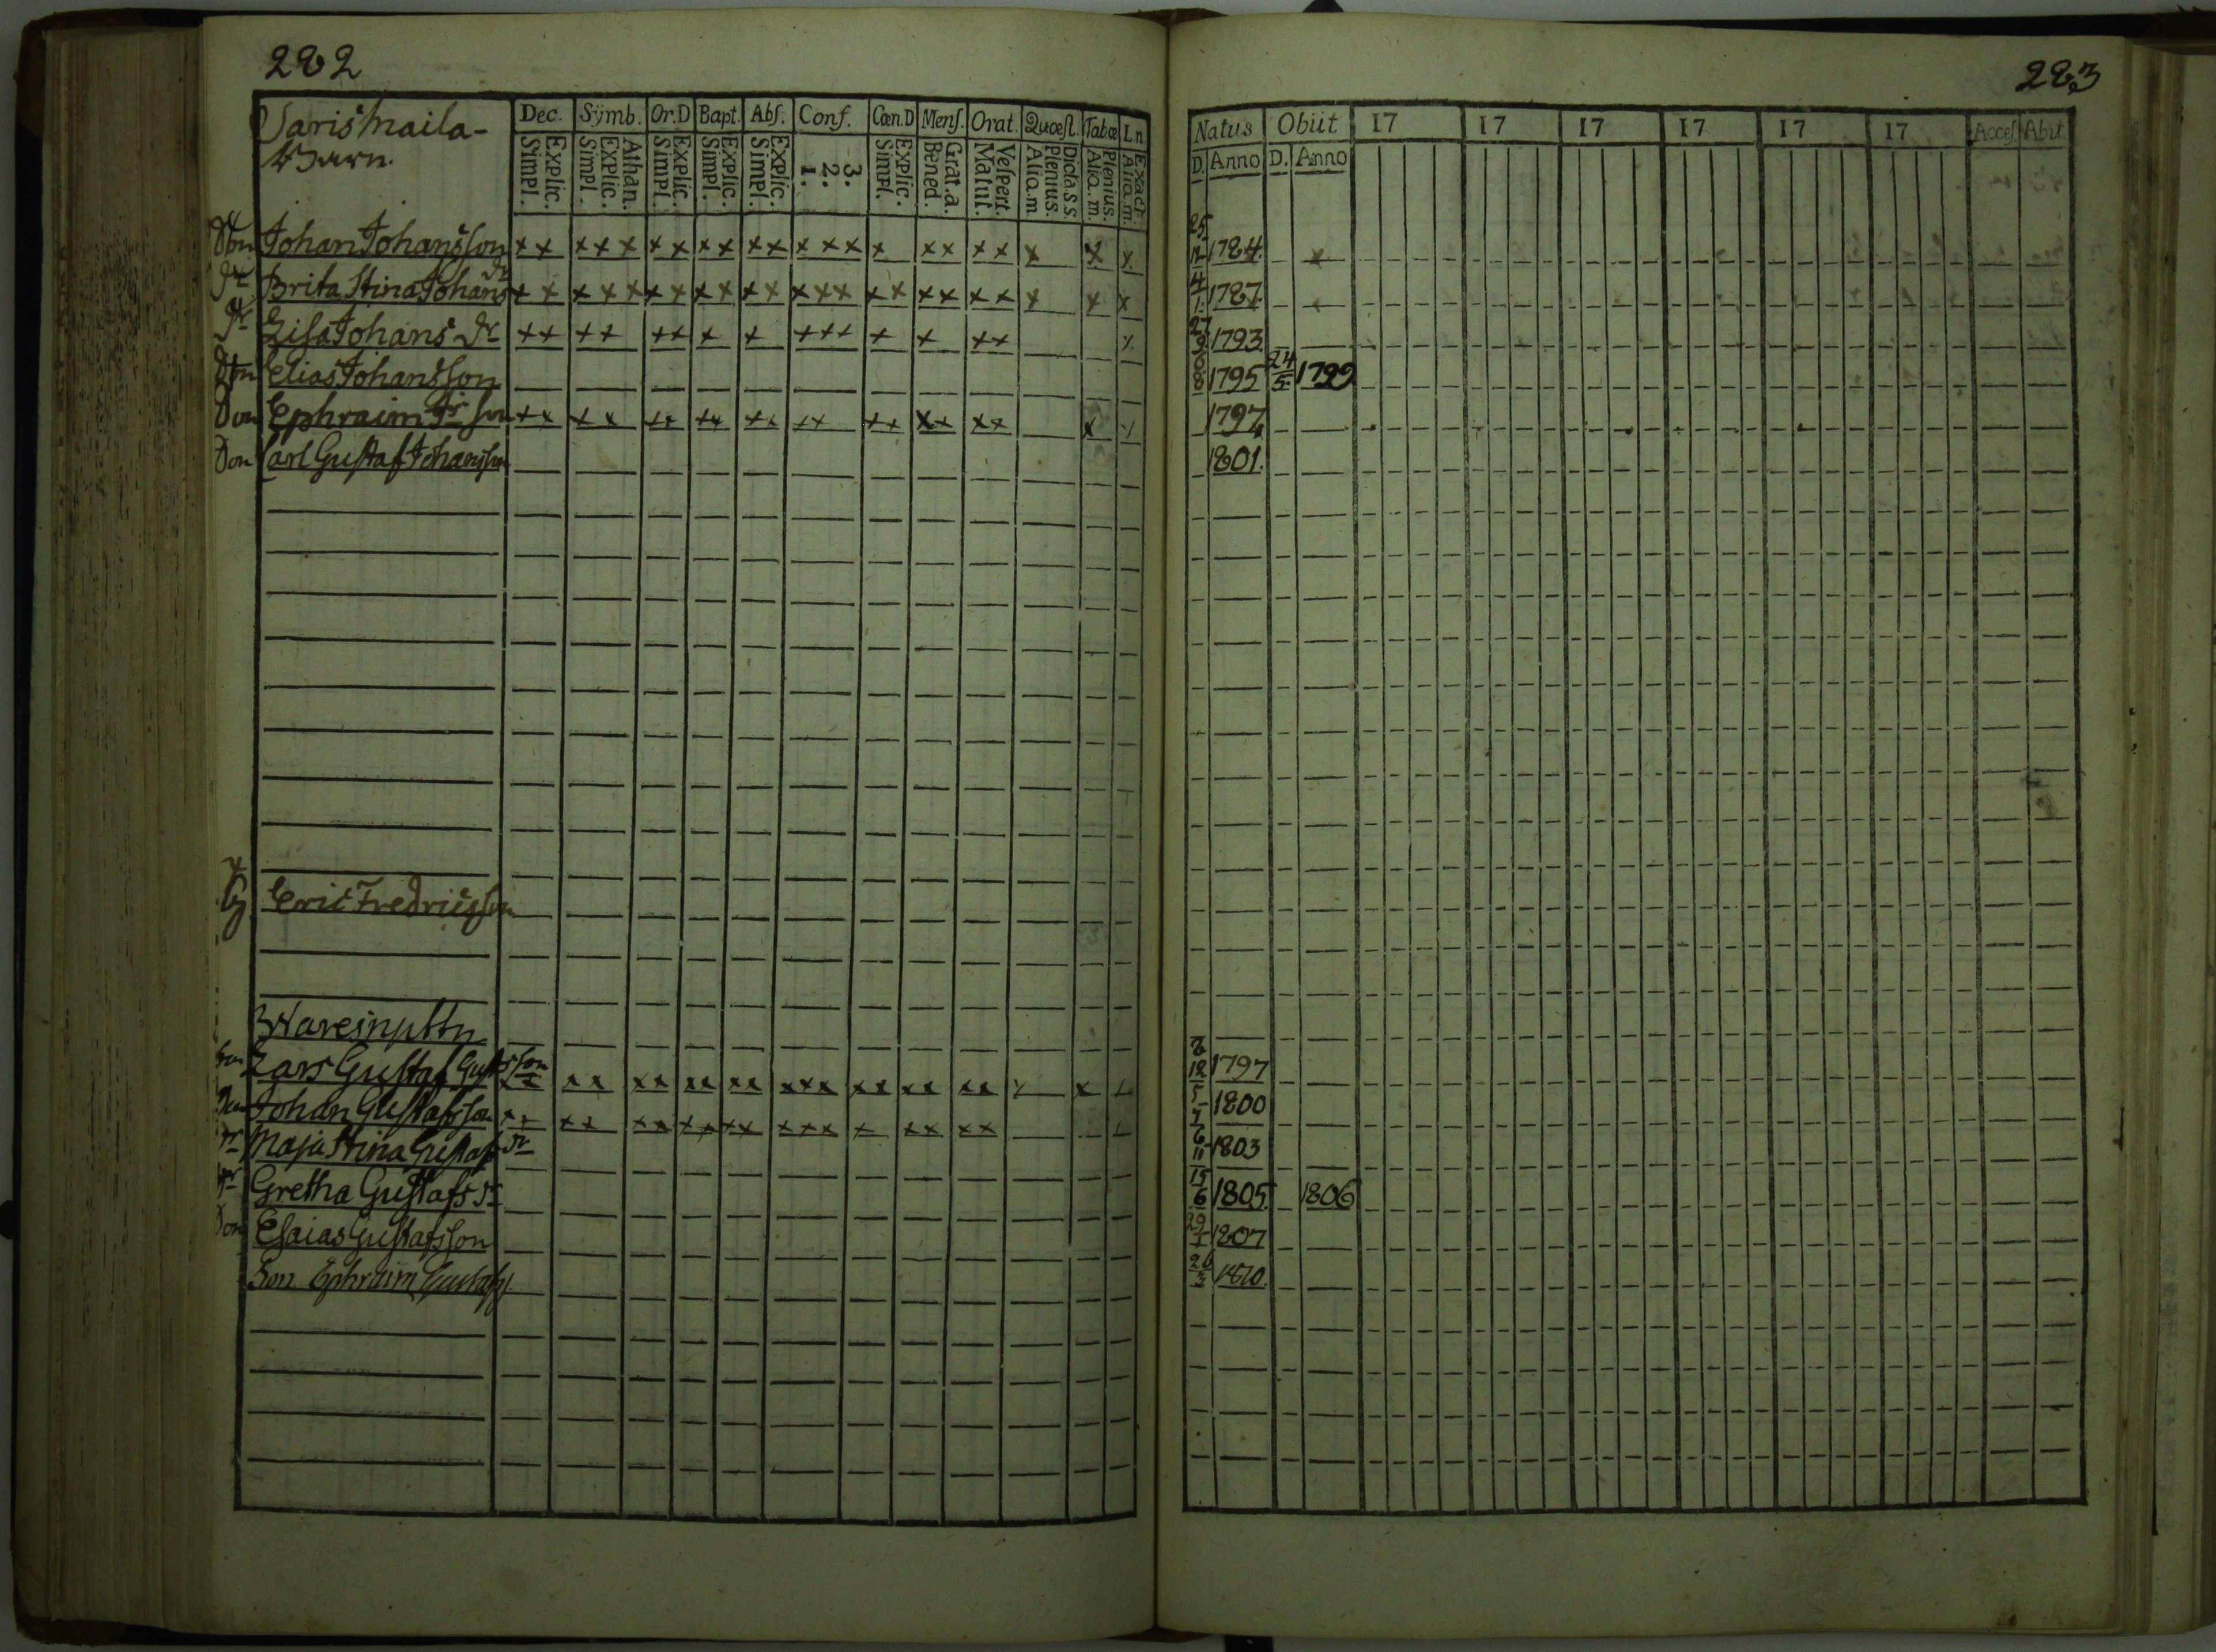 282
Sarismaila-
Barn.
Dec. Sÿmb. Or.D Bapt. Abſ. Conf. Cœn.D Menſ. Orat. Quœſt. Tabœ L.n
Simpl. Explic. Simpl. Explic. Athan. Simpl. Explic. Simpl. Explic. Simpl. Explic. 1. 2. 3. Simpl. Explic. Bened. Grat.a. Matut. Veſpert. Alio.m. Plenius. Dicta.S.S. Alio.m. Plenius. Alio.m. Exact.
Son Johan Johansson x x x x x x x x x x x x x x x x x x x x x x
Dr Brita Stina Johans Dr x x x x x x x x x x x x x x x x x x x x x
Dr Lisa Johans Dr x x x x x x x x x x x x x x x x
Son Elias Johansson
Son Ephraim Js son x x x x x x x x x x x x x x x x x x x x
Son Carl Gustaf Johansson
Eric Fredricsson
Son Lars Gustaf Gustsson x x x x x x x x x x x x x x x x x x x x x x
Son Johan Gustafsson x x x x x x x x x x x x x x x x x x x
Dr Maja Stina Gustafs Dr
Dr Gretha Gustafs Dr
Son Esaias Gustafsson
Son Ephraim Gustafss.
283
Natus Obiit 17 17 17 17 17 17 Acceſ. Abit
D. Anno D. Anno
25/12 1784. x
4/1 1787. x
27/9 1793.
6/8 1795 24/5 1799
1797
1801.
8/12 1797
5/7 1800
6/11 1803
15/6 1805. 1806
29/ 1807
26/3 1810.